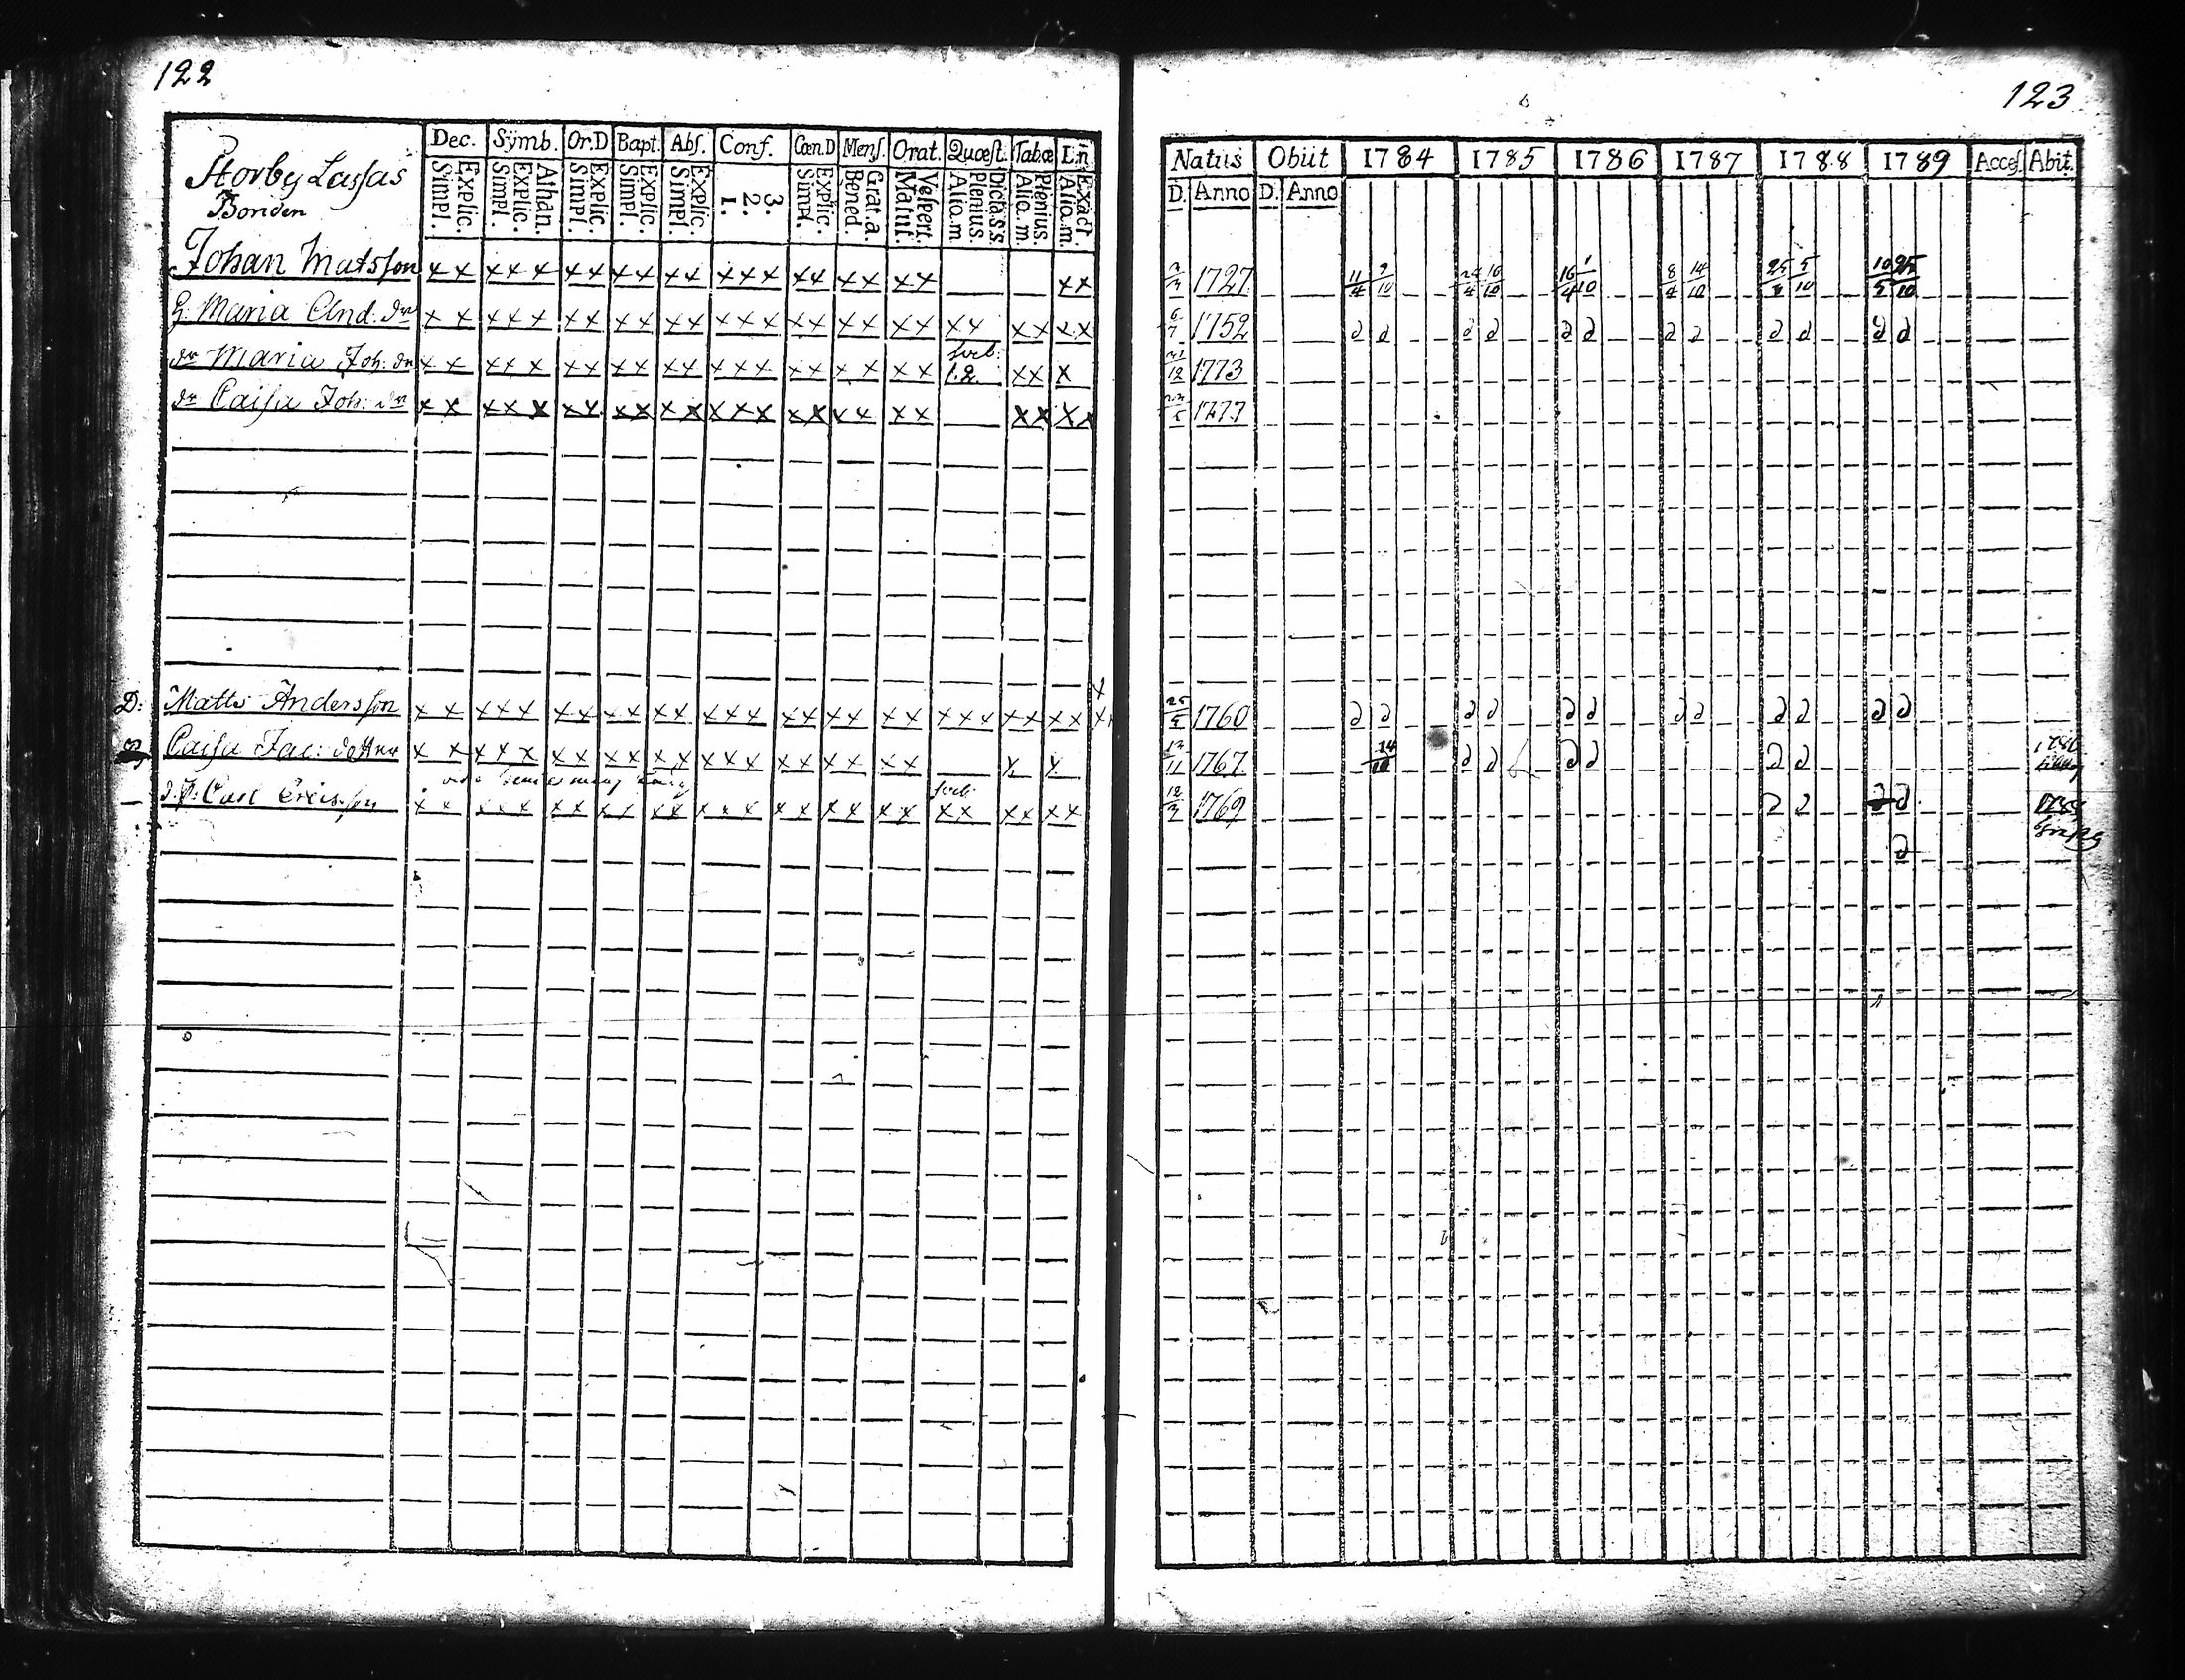 122
Storby Lassas
Bonden
Dec. Symb. Or.D Bapt. Abs. Conf. Cœn.D Mens. Orat. Quœst. Tabœ Lin.
Simpl. Explic. Simpl. Explic. Athan. Simpl. Explic. Simpl. Explic. Simpl. Explic. 1. 2. 3. Simpl. Explic. Bened. Grat.a. Matut. Vespert. Alio.m Plenius. Dicta.s.s. Alio.m. Plenius. Alio.m. Exact.
Johan Matsson x x x x x x x x x x x x x x x x x x x x x x
H. Maria And. dr x x x x x x x x x x x x x x x x x x x x x x x x x x
dr Maria Joh: dr x x x x x x x x x x x x x x x x x x x x 1.2. x x x
dr Caisa Joh: dr x x x x x x x x x x x x x x x x x x x x x x x x
D: Matts Andersson x x x x x x x x x x x x x x x x x x x x x x x x x x x
Caisa Jac: dotter x x x x x x x x x x x x x x x x x x x x x x
Carl Ericsson x x x x x x x x x x x x x x x x x x x x x x x x x x
123
Natus Obiit 1784 1785 1786 1787 1788 1789 Acces. Abit.
D. Anno D. Anno
1727 11/4 9/10 24/4 16/10 16/4 1/10 8/4 14/10 25/ 5/10 10/5 25/10
6/7 1752 ∂ ∂ ∂ ∂ ∂ ∂ ∂ ∂ ∂ ∂ ∂ ∂
21/12 1773
1777
25/ 1760 ∂ ∂ ∂ ∂ ∂ ∂ ∂ ∂ ∂ ∂ ∂ ∂
/11 1767 14/10 ∂ ∂ ∂ ∂ ∂ ∂
12/ 1769 ∂ ∂ ∂
∂